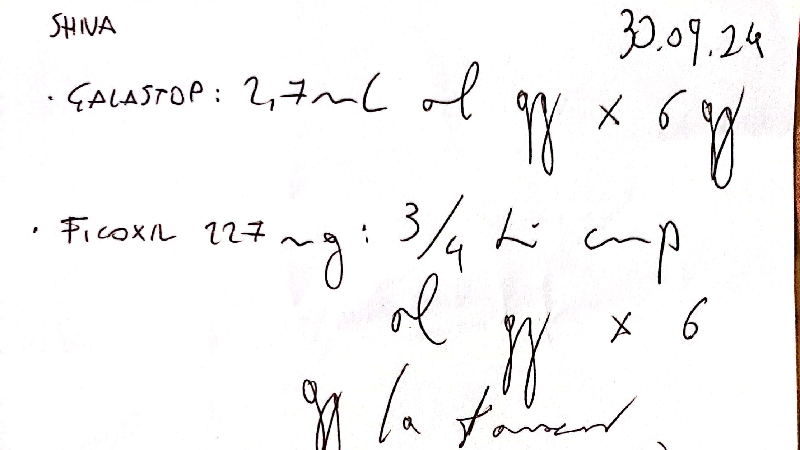 SHIVA
30.09.24
· GALASTOP: 2,7 mL al gg x 6 gg
· FICOXIL 227 mg: 3/4 di cmp
al gg x 6
gg la